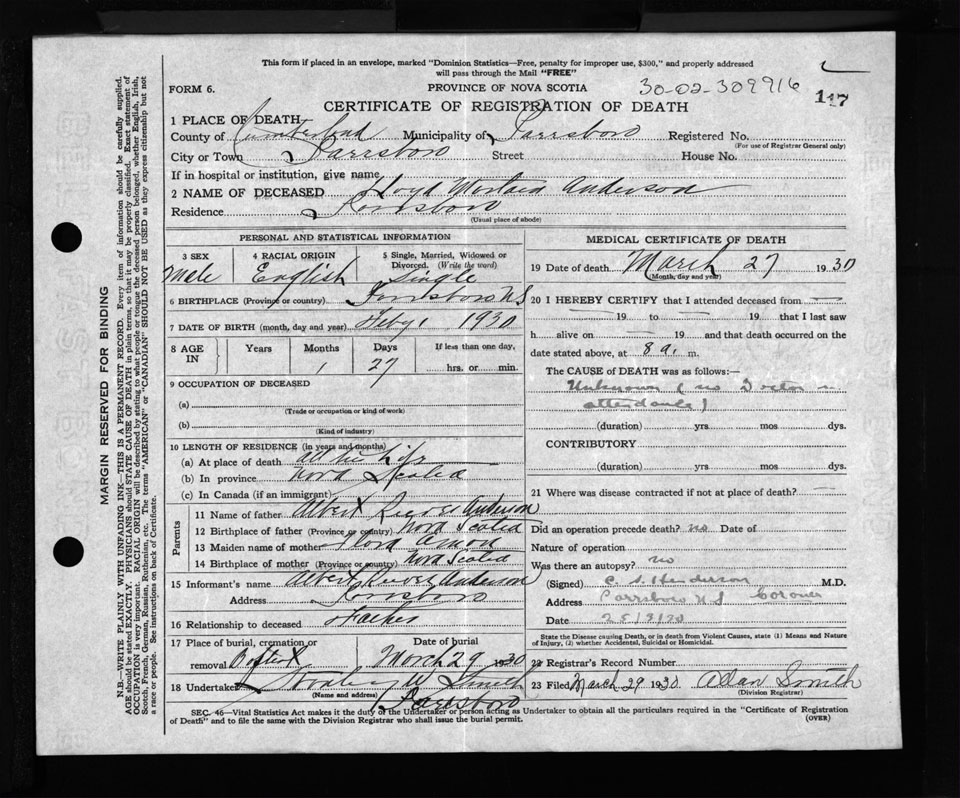 This form if placed in an envelope, marked "Dominion Statistics—Free, penalty for improper use, $300," and properly addressed
will pass through the Mail "FREE"
FORM 6.
PROVINCE OF NOVA SCOTIA
30-02-309916
117
CERTIFICATE OF REGISTRATION OF DEATH
1 PLACE OF DEATH
County of Cumberland Municipality of Parrsboro Registered No.
(For use of Registrar General only)
City or Town Parrsboro Street House No.
If in hospital or institution, give name
2 NAME OF DECEASED Floyd Anderson
Residence Parrsboro
(Usual place of abode)
PERSONAL AND STATISTICAL INFORMATION
3 SEX 4 RACIAL ORIGIN 5 Single, Married, Widowed or
Divorced. (Write the word)
Male English Single
6 BIRTHPLACE (Province or country) Parrsboro N.S
7 DATE OF BIRTH (month, day and year) Feby 1 1930
8 AGE IN Years Months Days If less than one day,
1 27 hrs. or min.
9 OCCUPATION OF DECEASED
(a)
(Trade or occupation or kind of work)
(b)
(Kind of industry)
10 LENGTH OF RESIDENCE (in years and months)
(a) At place of death all his life
(b) In province Nova Scotia
(c) In Canada (if an immigrant)
Parents
11 Name of father Albert Reeves Anderson
12 Birthplace of father (Province or country) Nova Scotia
13 Maiden name of mother Flora
14 Birthplace of mother (Province or country) Nova Scotia
15 Informant's name Albert Reeves Anderson
Address Parrsboro
16 Relationship to deceased Father
17 Place of burial, cremation or Date of burial
removal March 29 1930
18 Undertaker Stanley W Smith
(Name and address)
Parrsboro
MEDICAL CERTIFICATE OF DEATH
19 Date of death March 27 1930
(Month, day and year)
20 I HEREBY CERTIFY that I attended deceased from —
— 19 to — 19 that I last saw
h alive on — 19 and that death occurred on
date stated above, at 8 a. m.
The CAUSE of DEATH was as follows:—
Unknown (no Doctor in
attendance)
(duration) yrs. mos dys.
CONTRIBUTORY
(duration) yrs. mos. dys.
21 Where was disease contracted if not at place of death? —
Did an operation precede death? no Date of
Nature of operation
Was there an autopsy? no
(Signed) C. S. Henderson M.D.
Address Parrsboro N.S Coroner
Date
State the Disease causing Death, or in death from Violent Causes, state (1) Means and Nature
of Injury, (2) whether Accidental, Suicidal or Homicidal.
22 Registrar's Record Number
23 Filed March 29 1930 Allan Smith
(Division Registrar)
SEC. 46—Vital Statistics Act makes it the duty of the Undertaker or person acting as Undertaker to obtain all the particulars required in the "Certificate of Registration
of Death" and to file the same with the Division Registrar who shall issue the burial permit.
(OVER)
MARGIN RESERVED FOR BINDING
N.B.—WRITE PLAINLY WITH UNFADING INK—THIS IS A PERMANENT RECORD. Every item of information should be carefully supplied.
AGE should be stated EXACTLY. PHYSICIANS should STATE CAUSE OF DEATH in plain terms, so that it may be properly classified. Exact statement of
OCCUPATION is very important. RACIAL ORIGIN will be described by stating to what people or tongue the deceased person belonged, whether English, Irish,
Scotch, French, German, Russian, Ruthenian, etc. The terms "AMERICAN" or "CANADIAN" SHOULD NOT BE USED as they express citizenship but not
a race or people. See instructions on back of Certificate.